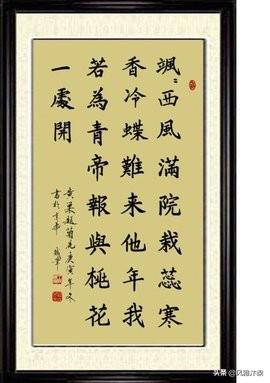 颯〻西風滿院栽蕊寒
香冷蝶難来他年我
若為青帝報與桃花
一處開
黄巢題菊花庚寅年冬
書於京華
头条 @风雅汴梁